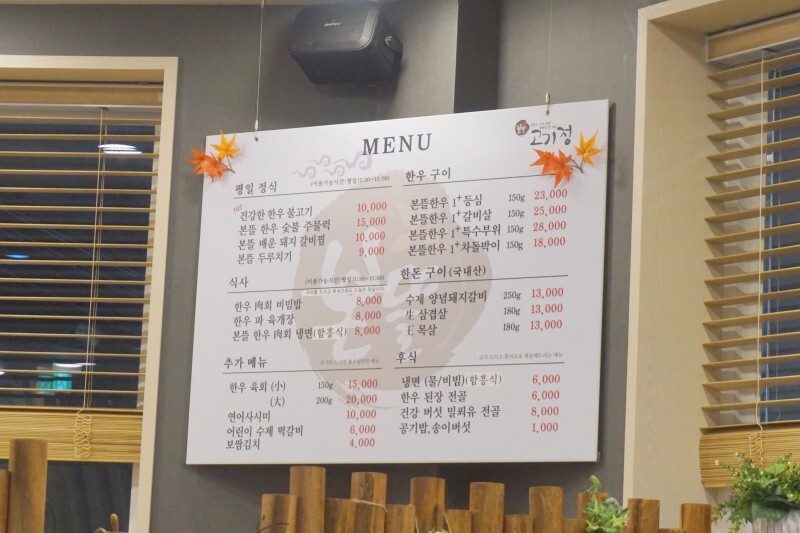 MENU
고기정
평일 정식 (이용가능시간:평일11:30~15:00)
건강한 한우 불고기 10,000
본뜰 한우 숯불 주물럭 15,000
본뜰 매운 돼지갈비찜 10,000
본뜰 두루치기 9,000
식사 (이용가능시간:평일11:30~15:00)
한우 肉회 비빔밥 8,000
한우 파 육개장 8,000
본뜰 한우 肉회 냉면(함흥식) 8,000
추가 메뉴
한우 육회 (小) 150g 15,000
(大) 200g 20,000
연어사시미 10,000
어린이 수제 떡갈비 6,000
보쌈김치 4,000
한우 구이
본뜰한우 1+등심 150g 23,000
본뜰한우 1+갈비살 150g 25,000
본뜰한우 1+특수부위 150g 28,000
본뜰한우 1+차돌박이 150g 18,000
한돈 구이 (국내산)
수제 양념돼지갈비 250g 13,000
生 삼겹살 180g 13,000
王 목살 180g 13,000
후식
냉면 (물/비빔)(함흥식) 6,000
한우 된장 전골 6,000
건강 버섯 밀푀유 전골 8,000
공기밥,송이버섯 1,000
본뜰